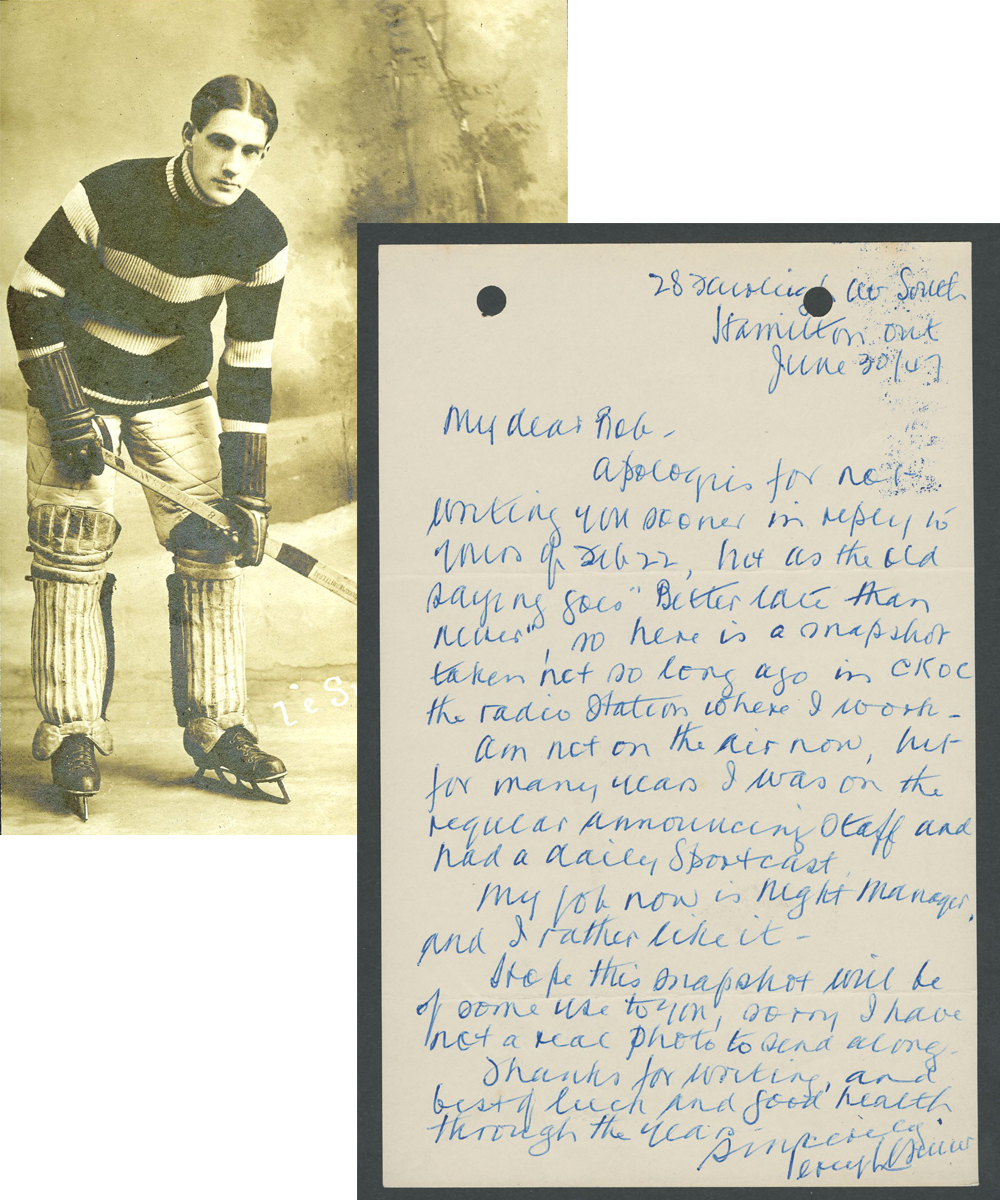 28 Av South
Hamilton Ont
June 30/47
My dear Bob -
Apologies for not
writing you sooner in reply to
yours of Feb 22, but as the old
saying goes "Better late than
never", so here is a snapshot
taken not so long ago in CKOC
the radio Station where I work -
Am not on the air now, but
for many years I was on the
regular announcing Staff and
had a daily Sportcast.
My job now is Night Manager,
and I rather like it -
Hope this snapshot will be
of some use to you, sorry I have
not a real photo to send along.
Thanks for writing, and
best of luck and good health
through the years
Sincerely.